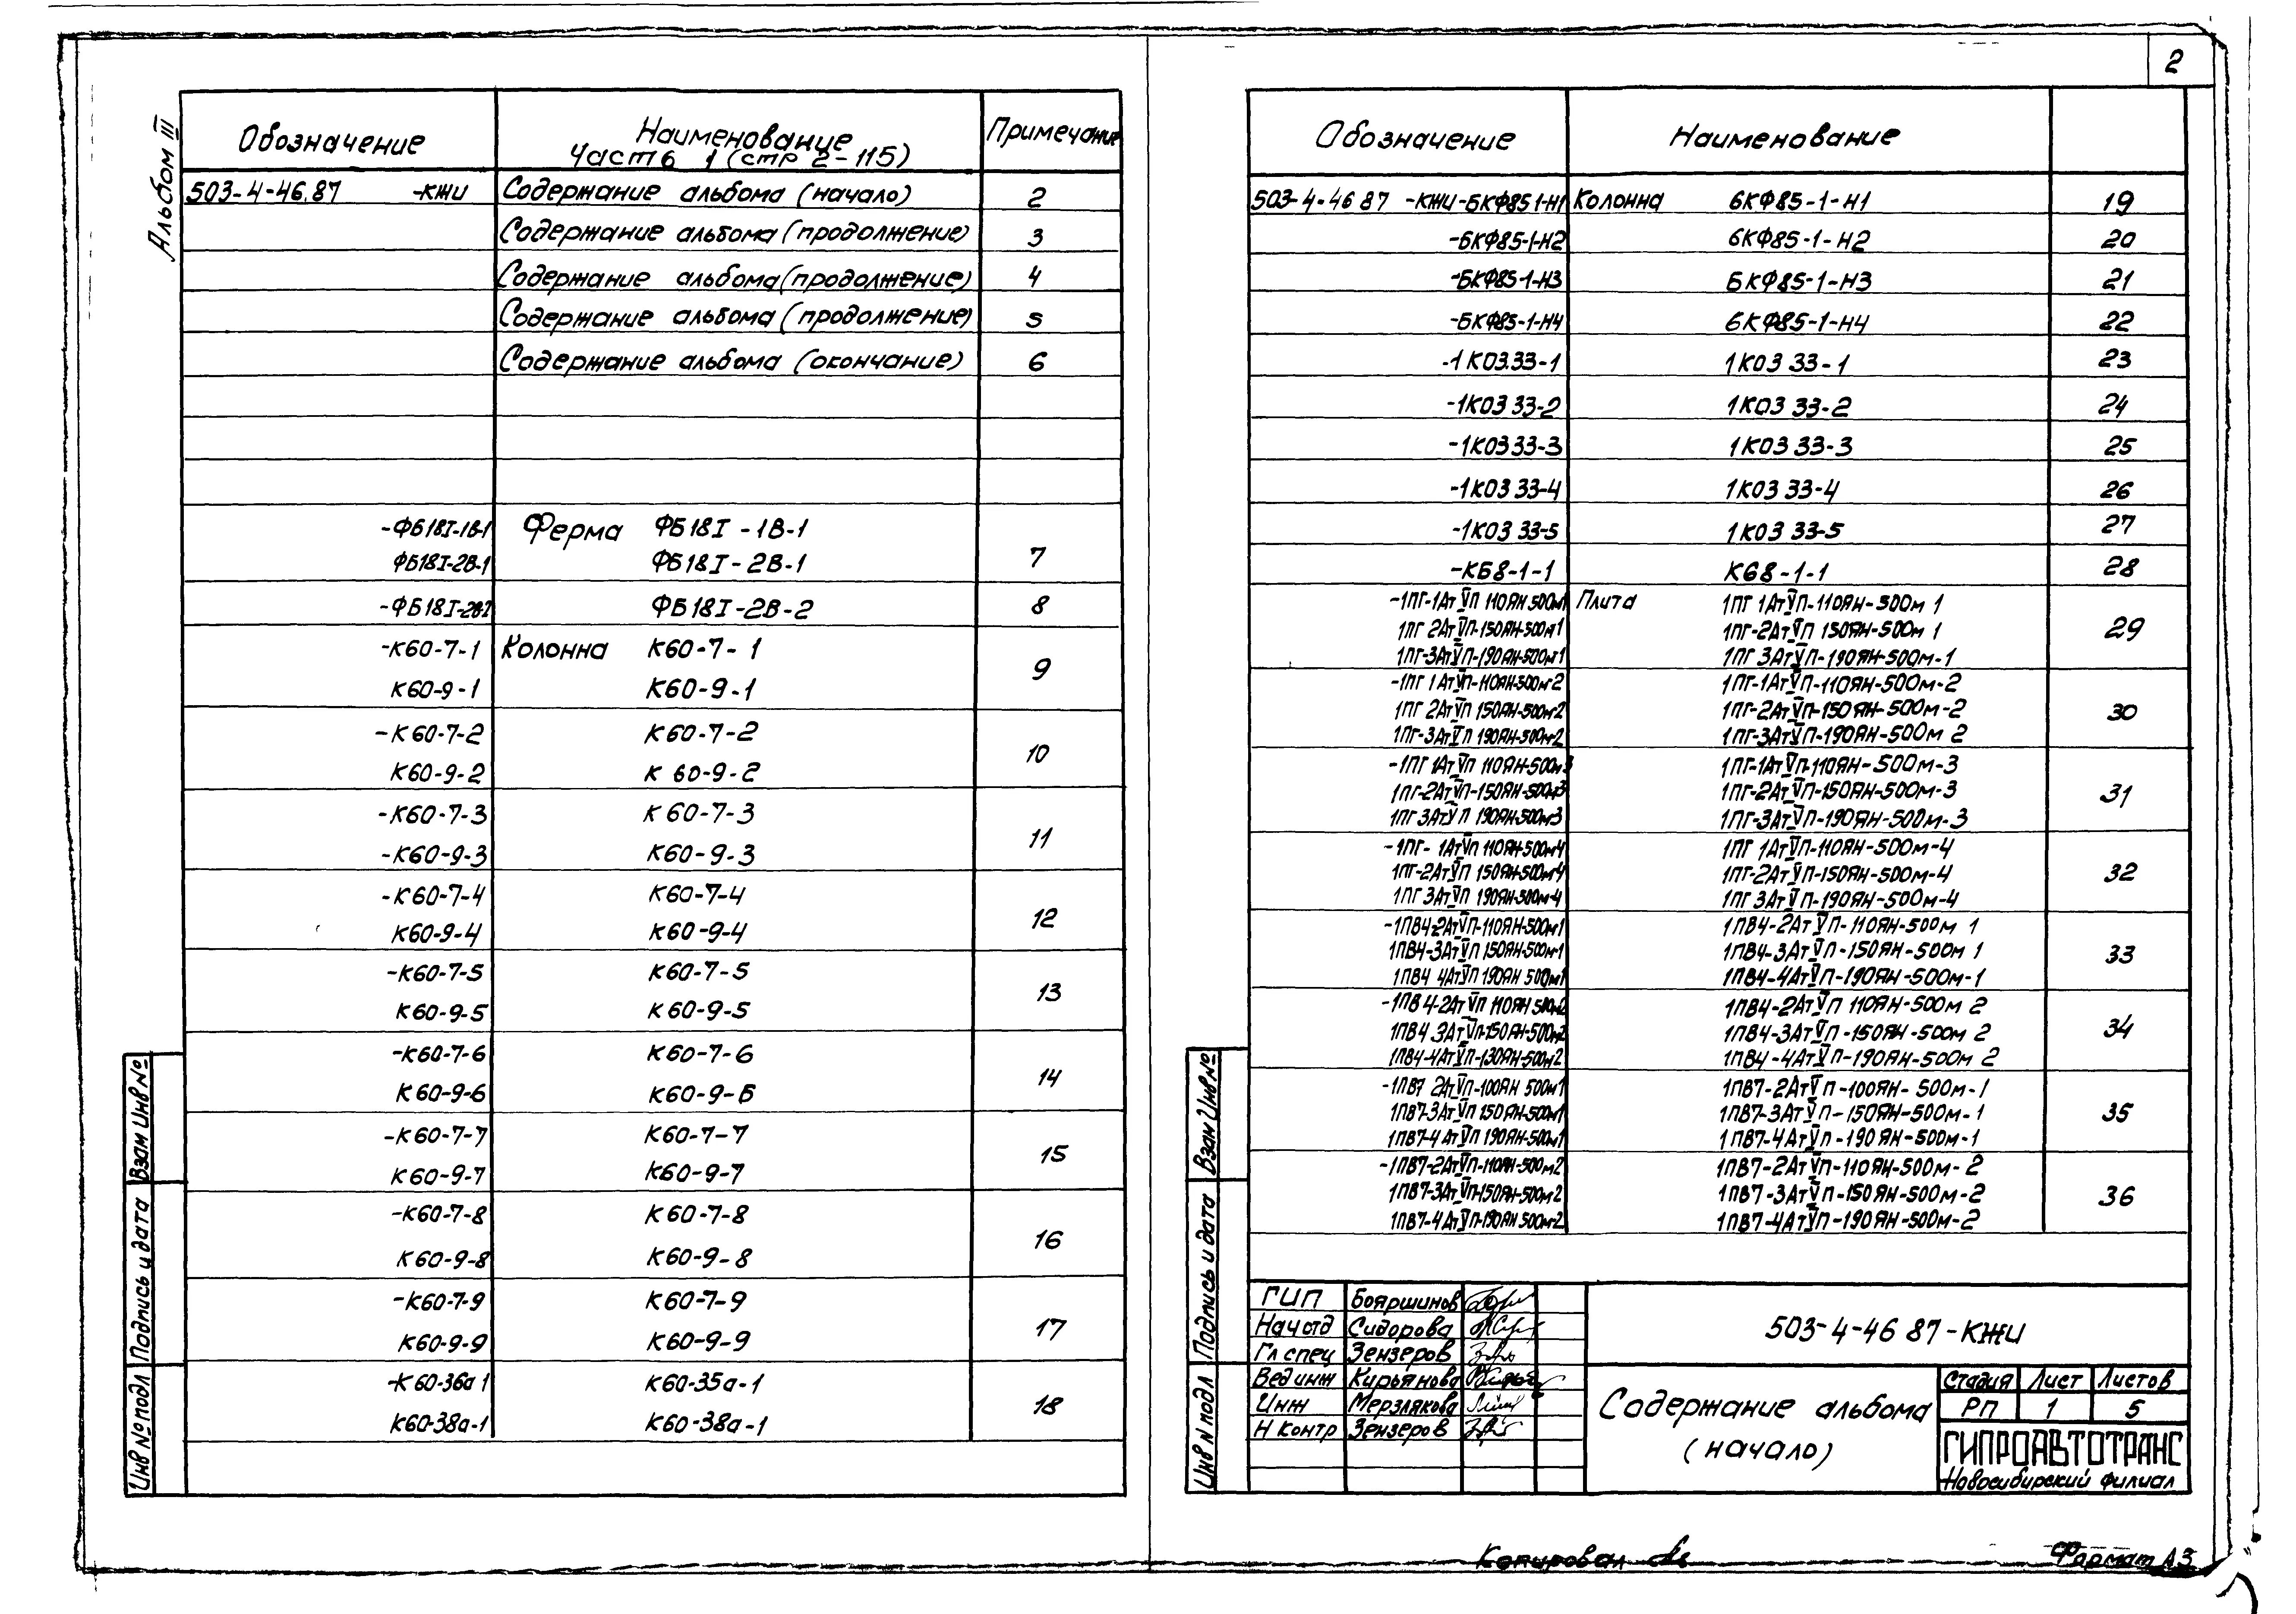 2
Альбом III
Обозначение Наименование Примечание
Часть 1 (стр 2-115)
503-4-46.87 -КЖИ Содержание альбома (начало) 2
Содержание альбома (продолжение) 3
Содержание альбома (продолжение) 4
Содержание альбома (продолжение) 5
Содержание альбома (окончание) 6
-ФБ18I-1В-1 Ферма ФБ18I-1В-1
ФБ18I-2В-1 ФБ18I-2В-1 7
-ФБ18I-2В-2 ФБ18I-2В-2 8
-К60-7-1 Колонна К60-7-1
К60-9-1 К60-9-1 9
-К60-7-2 К60-7-2
К60-9-2 К 60-9-2 10
-К60-7-3 К 60-7-3
-К60-9-3 К60-9-3 11
-К60-7-4 К60-7-4
К60-9-4 К60-9-4 12
-К60-7-5 К60-7-5
К60-9-5 К60-9-5 13
-К60-7-6 К60-7-6
К60-9-6 К60-9-Б 14
-К60-7-7 К60-7-7
К60-9-7 К60-9-7 15
-К60-7-8 К60-7-8
К60-9-8 К60-9-8 16
-К60-7-9 К60-7-9
К60-9-9 К60-9-9 17
-К60-36а 1 К60-35а-1
К60-38а-1 К60-38а-1 18
Взам Инв №
Подпись и дата
Инв № подл
Обозначение Наименование
503-4-46 87 -КЖИ-БКФ85 1-Н1 Колонна 6КФ85-1-Н1 19
-БКФ85-1-Н2 6КФ85-1-Н2 20
-БКФ85-1-Н3 БКФ85-1-Н3 21
-БКФ85-1-Н4 6КФ85-1-Н4 22
-1К03.33-1 1К03 33-1 23
-1К03 33-2 1К03 33-2 24
-1К03 33-3 1К03 33-3 25
-1К03 33-4 1К03 33-4 26
-1К03 33-5 1К03 33-5 27
-КБ8-1-1 К68-1-1 28
-1ПГ-1АтVП 110ЯН 500м1 Плита 1ПГ 1АтVП-110ЯН-500м 1
1ПГ 2АтVП-150ЯН-500м1 1ПГ-2АтVП 150ЯН-500м 1 29
1ПГ-3АтVП-190ЯН-500м1 1ПГ 3АтVП-190ЯН-500м-1
-1ПГ 1АтVП-110ЯН-500м-2 1ПГ-1АтVП-110ЯН-500м-2
1ПГ 2АтVП 150ЯН-500м2 1ПГ-2АтVП-150ЯН-500м-2 30
1ПГ-3АтVП 190ЯН-500м2 1ПГ-3АтVП-190ЯН-500м 2
-1ПГ 1АтVП 110ЯН-500м3 1ПГ-1АтVП-110ЯН-500м-3
1ПГ-2АтVП-150ЯН-500м3 1ПГ-2АтVП-150ЯН-500м-3 31
1ПГ 3АтVП 190ЯН-500м3 1ПГ-3АтVП-190ЯН-500м-3
-1ПГ- 1АтVП 110ЯН-500м4 1ПГ 1АтVП-110ЯН-500м-4
1ПГ-2АтVП 150ЯН-500м4 1ПГ-2АтVП-150ЯН-500м-4 32
1ПГ 3АтVП 190ЯН-500м-4 1ПГ 3АтVП-190ЯН-500м-4
-1ПВ4-2АтVП-110ЯН-500м1 1ПВ4-2АтVП-110ЯН-500м 1
1ПВ4-3АтVП 150ЯН-500м-1 1ПВ4-3АтVП-150ЯН-500м 1 33
1ПВ4 4АтVП 190ЯН 500м1 1ПВ4-4АтVП-190ЯН-500м-1
-1ПВ4-2АтVП 110ЯН 500м2 1ПВ4-2АтVП 110ЯН-500м 2
1ПВ4 3АтVП-150ЯН-500м2 1ПВ4-3АтVП-150ЯН-500м 2 34
1ПВ4-4АтVП-130ЯН-500м2 1ПВ4-4АтVП-190ЯН-500м 2
-1ПВ7 2АтVП-100ЯН 500м1 1ПВ7-2АтVП-100ЯН- 500м-1
1ПВ7-3АтVП 150ЯН-500м1 1ПВ7-3АтVП-150ЯН-500м-1 35
1ПВ7-4АтVП 190ЯН-500м1 1ПВ7-4АтVП-190ЯН-500м-1
-1ПВ7-2АтVП-110ЯН-500м2 1ПВ7-2АтVП-110ЯН-500м-2
1ПВ7-3АтVП-150ЯН-500м2 1ПВ7-3АтVП-150ЯН-500м-2 36
1ПВ7-4АтVП-190ЯН 500м-2 1ПВ7-4АтVП-190ЯН-500м-2
Взам Инв №
Подпись и дата
Инв N подл
ГИП Бояршинов
Нач отд Сидорова
Гл спец Зензеров
Вед инж Кирьянова
Инж Мерзлякова
Н контр Зензеров
503-4-46 87-КЖИ
Содержание альбома
(начало)
Стадия Лист Листов
РП 1 5
ГИПРОАВТОТРАНС
Новосибирский филиал
Копировал
Формат А3